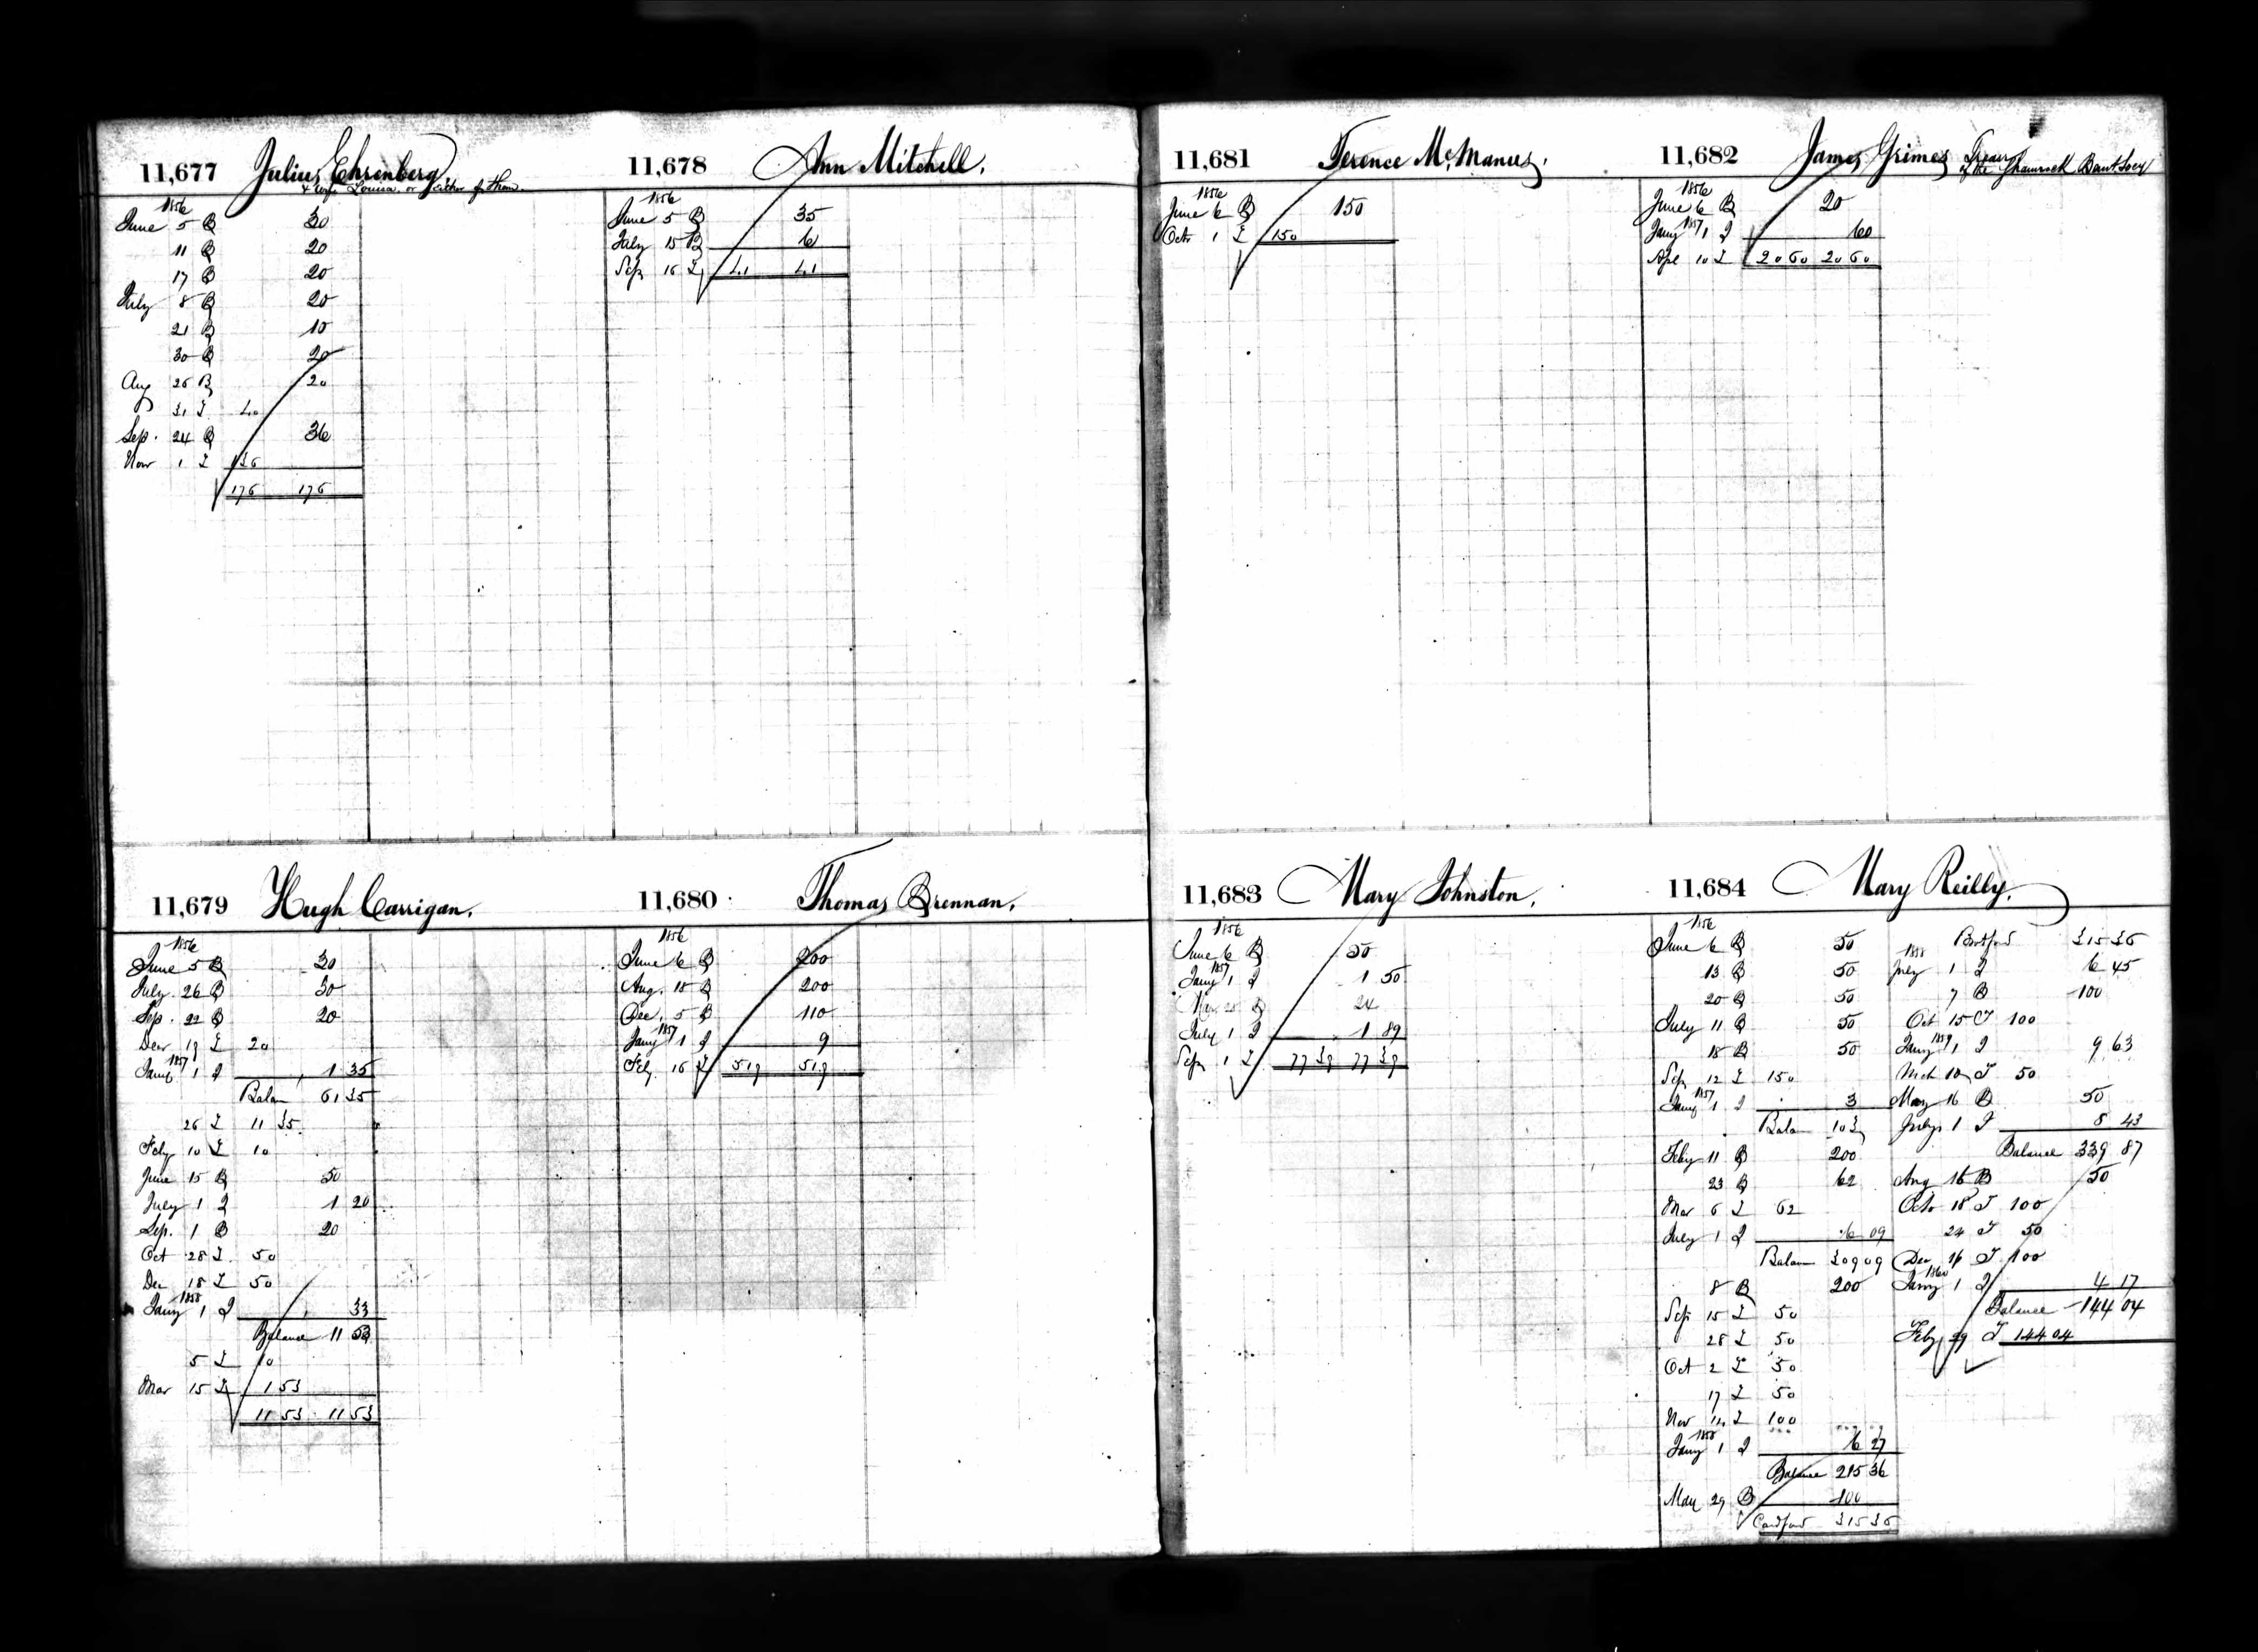 11,677 Julius Ehrenberg
& wife Louisa or either of them.
1856
June 5 B 30
11 B 20
17 B 20
July 8 B 20
21 B 10
30 B 20
Aug 26 B 20
31 T 40
Sep. 24 B 36
Nov 1 T 136
176 176
11,678 Ann Mitchell.
1856
June 5 B 35
July 15 B 6
Sep 16 T 41 41
11,679 Hugh Carrigan.
1856
June 5 B 30
July 26 B 30
Sep. 22 B 20
Decr 19 T 20
1857
Jany 1 I 1 35
Balan 61 35
26 T 11 35
Feby 10 T 10
June 15 B 50
July 1 I 1 20
Sep. 1 B 20
Oct 28 T 50
Dec 18 T 50
1858
Jany 1 I 33
Balance 11 53
5 T 10
Mar 15 T 1 53
11 53 11 53
11,680 Thomas Brennan.
1856
June 6 B 200
Aug. 18 B 200
Dec. 5 B 110
1857
Jany 1 I 9
Feby 16 T 519 519
11,681 Terence McManus.
1856
June 6 B 150
Octr 1 T 150
11,682 James Grimes Treasr
of the Shamrock Bent Socy
1856
June 6 B 20
1857
Jany 1 I 60
Apl 10 T 20 60 20 60
11,683 Mary Johnston.
1856
June 6 B 50
1857
Jany 1 I 1 50
Mar 28 B 24
July 1 I 1 89
Sep 1 T 77 39 77 39
11,684 Mary Reilly.
1856
June 6 B 50
13 B 50
20 B 50
July 11 B 50
18 B 50
Sep 12 T 150
1857
Jany 1 I 3
Balan 103
Feby 11 B 200
23 B 62
Mar 6 T 62
July 1 I 6 09
Balan 309 09
8 B 200
Sep 15 T 50
28 T 50
Oct 2 T 50
17 T 50
Nov 14 T 100
1858
Jany 1 I 6 27
Balance 215 36
May 29 B 100
Cardford 315 36
Brotford 315 36
1858
July 1 I 6 45
7 B 100
Oct 15 T 100
1859
Jany 1 I 9 63
Mch 10 T 50
May 16 B 50
July 1 I 8 43
Balance 339 87
Aug 16 B 50
Octr 18 T 100
24 T 50
Dec 16 T 100
1860
Jany 1 I 4 17
Balance 144 04
Feby 29 T 144 04